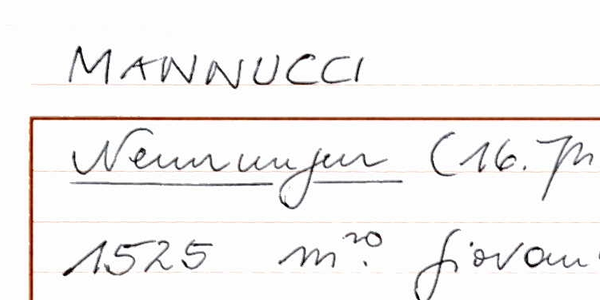 MANNUCCI
Nennungen (16. Jh
1525 m.ro Giovan